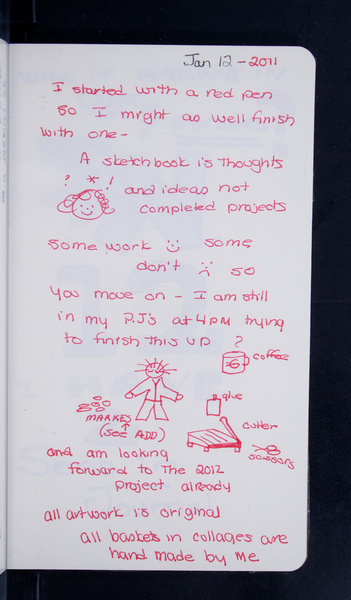 Jan 12 - 2011
I started with a red pen
so I might as well finish
with one -
A sketchbook is thoughts
? * !
and ideas not
completed projects
some work :) some
don't :( so
you move on - I am still
in my PJ's at 4PM trying
to finish this up
?
coffee
glue
MARKES
(see ADD)
cutter
scissors
and am looking
forward to the 2012
project already
all artwork is original
all baskets in collages are
hand made by me